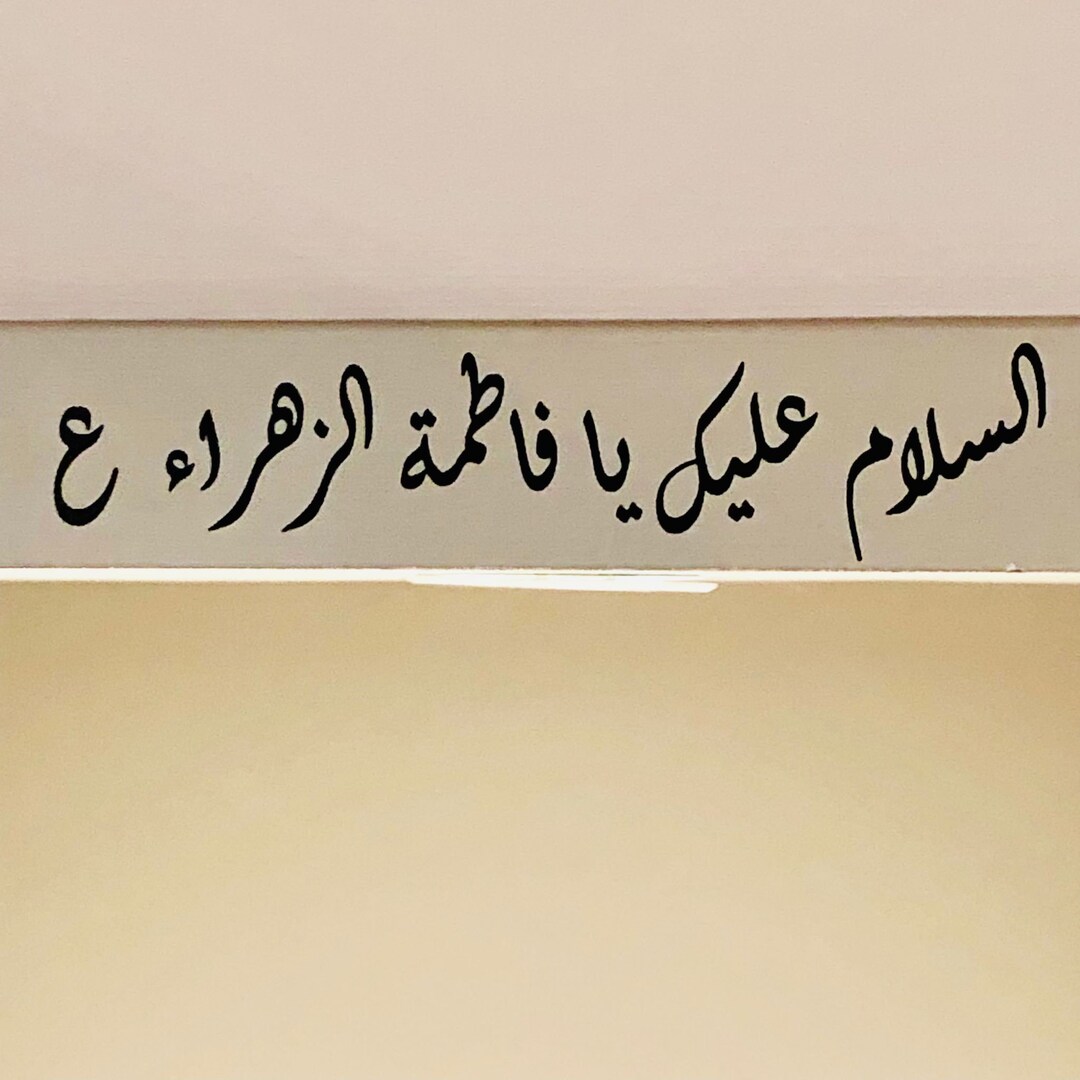 السلام عليك يا فاطمة الزهراء ع